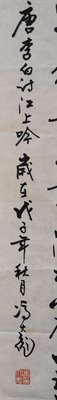 唐李白诗江上吟岁在戊子年秋月冯